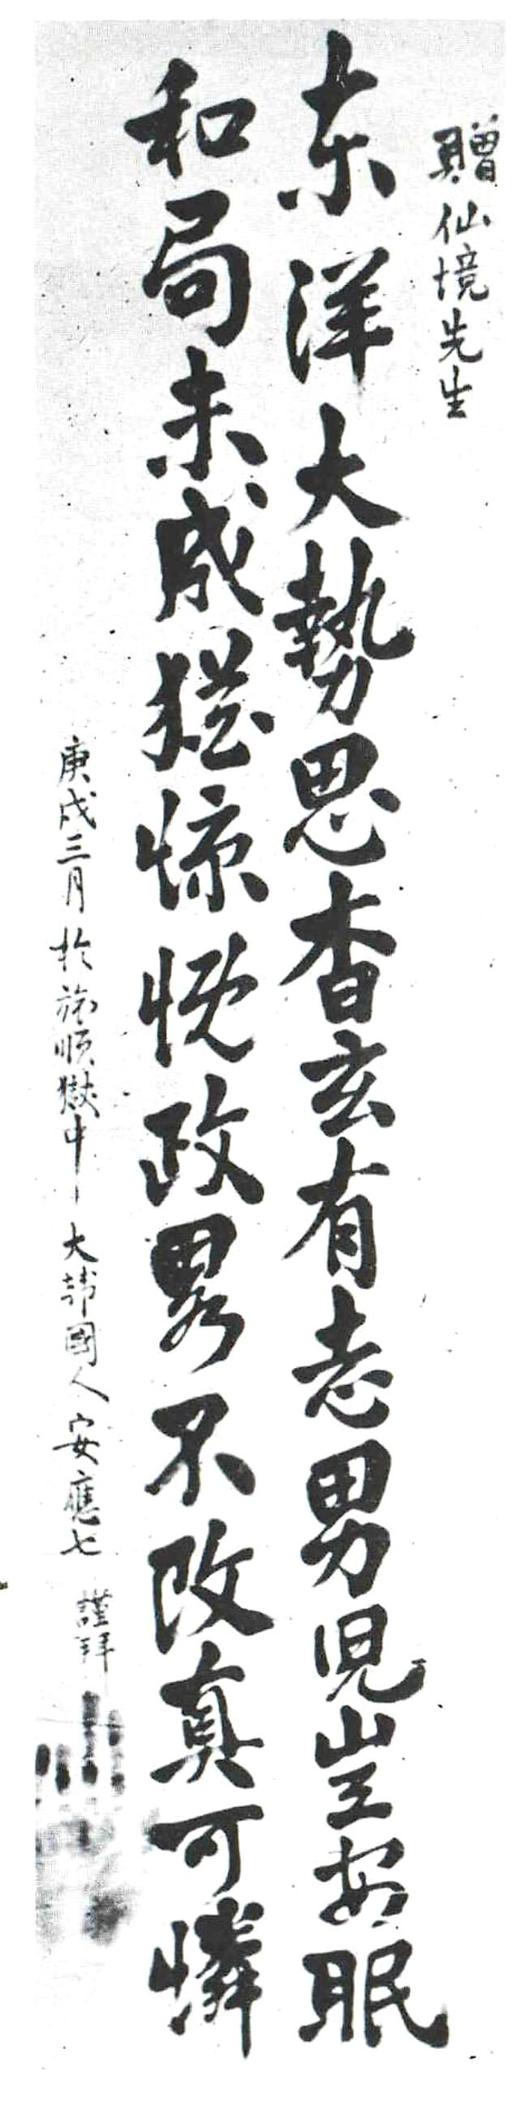 贈仙境先生
東洋大勢思杳玄有志男児豈安眠
和局未成猶慷慨政畧不改真可憐
庚戌三月 於旅順獄中 大韓國人 安應七 謹拜